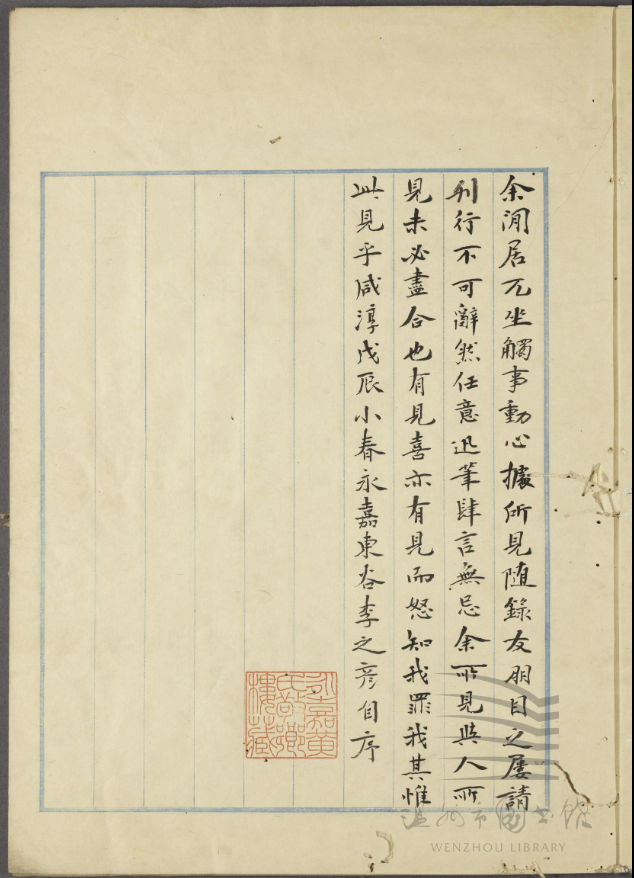 余閒居兀坐觸事動心據所見随錄友朋目之屢請
刋行不可辭然任意迅筆肆言無忌余所見與人所
見未必盡合也有見喜亦有見而怒知我罪我其惟
此見乎咸淳戊辰小春永嘉東谷李之彥自序
永嘉黃
氏敬鄉
樓藏
温州市图书馆
WENZHOU LIBRARY